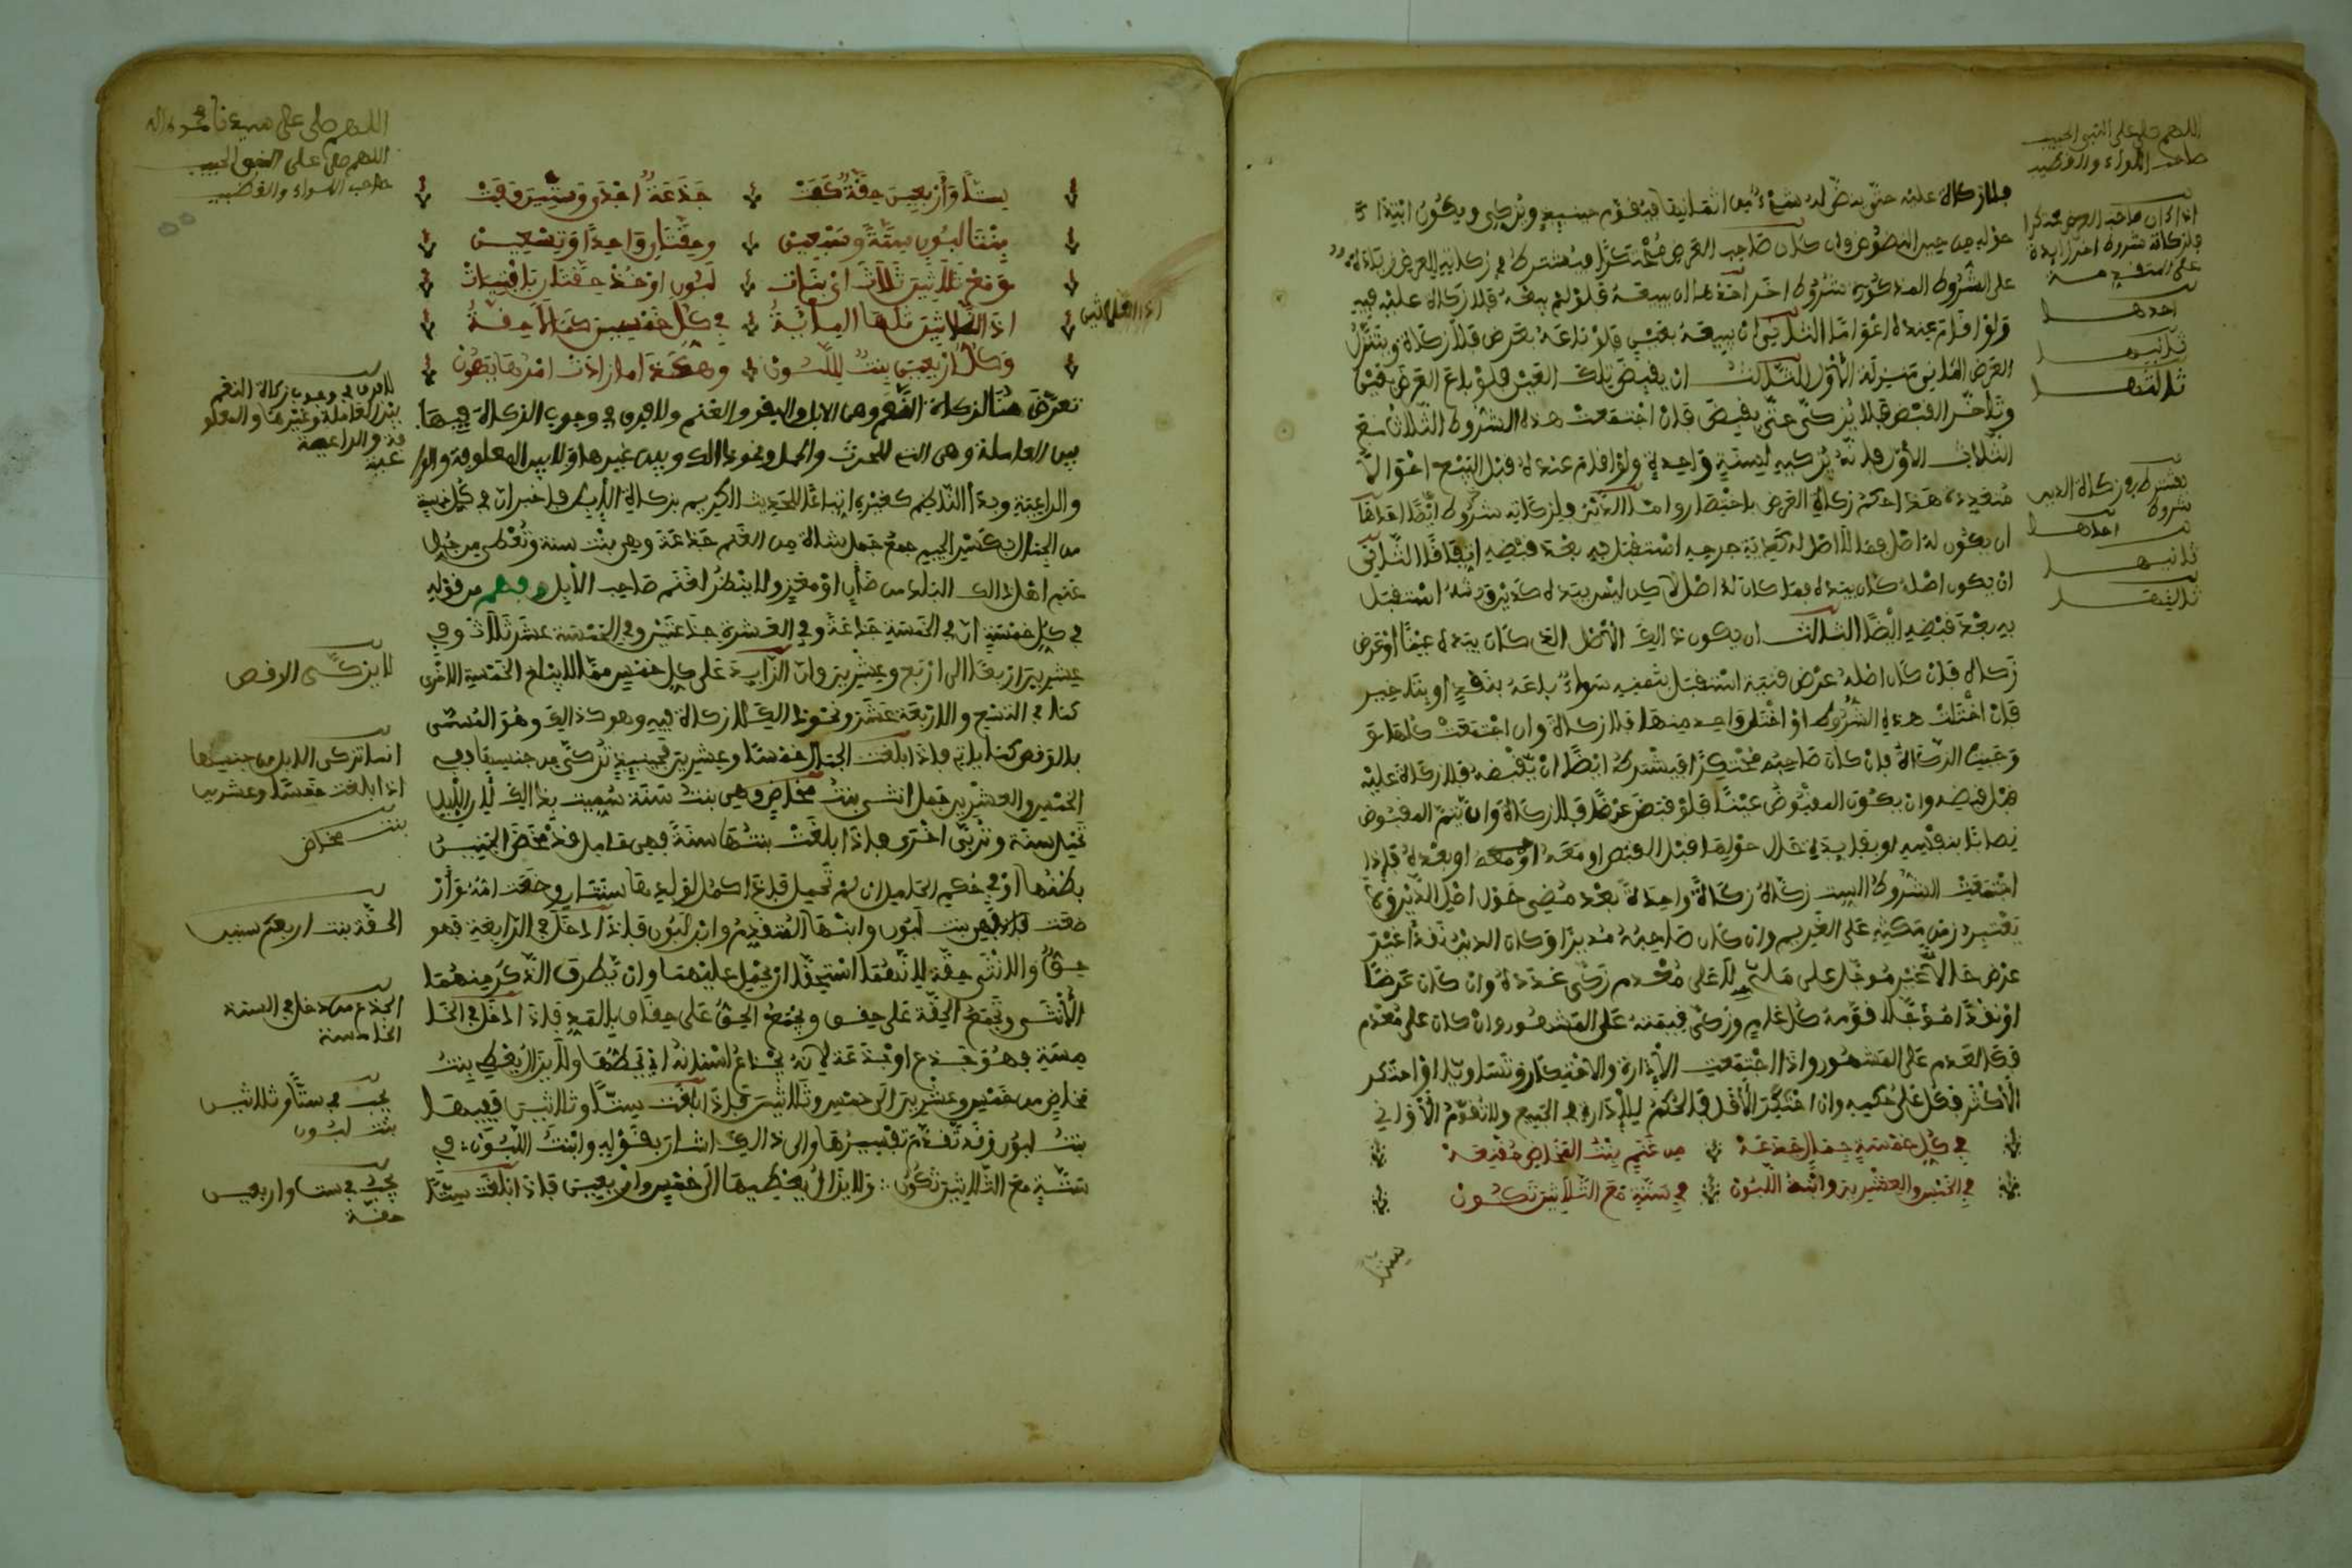 اللهم صل على النبي الحبيب
صاحب اللواء والقضيب
فلا زكاة عليه حتى ينض له شيء من اثمانها فيقوم حينئذ ويزكي ويكون ابتداء
حوله من حين النضوض وان كان صاحب العرض محتكرا فيشترط في زكاته العرض زيادة
على الشروط المذكورة شروط اخر احدها ان يبيعه فلو لم يبعه فلا زكاة عليه فيه
ولو اقام عنده اعواما الثاني ان يبيعه بعين فلو باعه بعرض فلا زكاة ويتنزل
العرض الثاني منزلة الاول الثالث ان يقبض تلك العين فلو باع العرض بعين
وتأخر القبض فلا يزكى حتى يقبض فان اجتمعت هذه الشروط الثلاث مع
الثلاث الاول فانه يزكيه لسنة واحدة ولو اقام عنده قبل البيع اعواما
متعددة هذا حكم زكاة العرض باختصار واما الدين فلزكاته شروط ايضا احدها
ان يكون له اصل فما لا اصل له كدية جرح استقبل به بعد قبضه اتفاقا الثاني
ان يكون اصله كان بيده فما كان له اصل لكن ليس بيده استقبل
به بعد قبضه ايضا الثالث ان يكون ذلك الاصل الذي كان بيده عينا او عرض
زكاة فان كان اصله عرض قنية استقبل بثمنه سواء باعه بنقد او بتاخير
فان اختلت هذه الشروط او اختل واحد منها فلا زكاة وان اجتمعت كلها
وجبت الزكاة فان كان صاحبه محتكرا فيشترط ايضا ان يقبضه فلا زكاة عليه
قبل قبضه وان يكون المقبوض عينا فلو قبض عرضا فلا زكاة وان يتم المقبوض
نصابا بنفسه او بفايدة حال حولها قبل القبض او معه او بعده فاذا
اجتمعت الشروط الست زكاه زكاة واحدة بعد مضي حول اصل الدين ولا
يعتبر زمن مكثه على الغريم وان كان صاحبه مديرا وكان الدين نقدا غير
عرض حالا غير موجل على ملي لا على معدم زكى عدده وان كان عرضا
او نقدا موجلا قومه كل عام وزكى قيمته على المشهور وان كان على معدم
فكالعدم على المشهور واذا اجتمعت الادارة والاحتكار وتساويا او احتكر
الاكثر فكل على حكمه وان احتكر الاقل فالحكم للادارة في الجميع ولا تقوم الاواني
في كل خمسة جمال جذعة من غنم بنت المخاض مقنعة
في الخمس والعشرين وابنة اللبون في ستة مع الثلاثين تكون
ستا
اذا كان صاحب العرض محتكرا
فلزكاته شروط اخر زايدة
على المتقدمة
احدها
ثانيها
ثالثها
يشترط في زكاة الدين
شروط
احدها
ثانيها
ثالثها
اللهم صلى على سيدنا محمد واله
اللهم صلى على النبي الحبيب
صاحب اللواء والقضيب
ستا واربعين حقة كفت جذعة احدى وستين وفت
بنتا لبون ستة وسبعين وحقتان واحدا وتسعين
ومع ثلاثين ثلاث اي بنات لبون او خذ حقتان بافتيات
اذا الثلاثين تلتها المائة في كل خمسين كمالا حقة
وكل اربعين بنت للبون وهكذا ما زادت امرها يهون
اذا الثلاثين
تعرض هنا لزكاة النعم وهي الابل والبقر والغنم ولا فرق في وجوب الزكاة فيها
بين العاملة وهي التي للحرث والحمل ونحو ذالك وبين غيرها ولا بين المعلوفة
والراعية وبدأ الناظم كغيره اتباعا للحديث الكريم بزكاة الابل فاخبر ان في كل خمسة
من الجمال بكسر الجيم جمع جمل شاة من الغنم جذعة وهي بنت سنة وتعطى من جل
غنم اهل ذالك البلد من ضأن او معز ولا ينظر لغنم صاحب الابل وفهم من قوله
في كل خمسة ان في الخمسة جذعة وفي العشرة جذعتين وفي الخمسة عشر ثلاث وفي
عشرين اربعا الى اربع وعشرين وان الزايد على كل خمس مما لا يبلغ الخمسة الاخرى
كما في التسع والاربعة عشر ونحو ذالك لا زكاة فيه وهو كذالك وهو المسمى
بالوقص كما ياتي فاذا بلغت الجمال خمسا وعشرين فحينئذ تزكى من جنسها ففي
الخمس والعشرين جمل انثى بنت مخاض وهي بنت سنة سميت بذالك لان الابل
تحمل سنة وتربي اخرى فاذا بلغت بنتها سنة فهي حامل قد مخض الجنين
بطنها او في حكم الحامل ان لم تحمل فاذا اكمل لولدها سنتان وضعت امه وار
ضعت فهي بنت لبون وابنها المتقدم وابن لبون فاذا دخل في الرابعة فهو
حق والانثى حقة لانهما استحقا ان يحمل عليهما وان يطرق الذكر منهما
الانثى وتجمع الحقة على حقق ويجمع الحق على حقاق بالمد فاذا دخل في الخا
مسة فهو جذع او جذعة لانه يجذع اسنانه اي يحطها ولا يزال يعطي بنت
مخاض من خمس وعشرين الى خمس وثلاثين فاذا بلغت ستا وثلاثين ففيها
بنت لبون وقد تقدم تفسيرها والى ذالك اشار بقوله وابنة اللبون في
ستة مع الثلاثين تكون ولا يزال يعطيها الى خمس واربعين فاذا بلغت ستا
لا فرق في وجوب زكاة النعم
بين العاملة وغيرها والمعلو
فة والراعية
لا يزكى الاوقص
انما تزكى الابل من جنسها
اذا بلغت خمسا وعشرين
بنت مخاض
الحقة بنت اربعة سنين
الجذع من دخل في السنة
الخامسة
يجب في ستا وثلاثين
بنت لبون
يجب في ستا واربعين
حقة